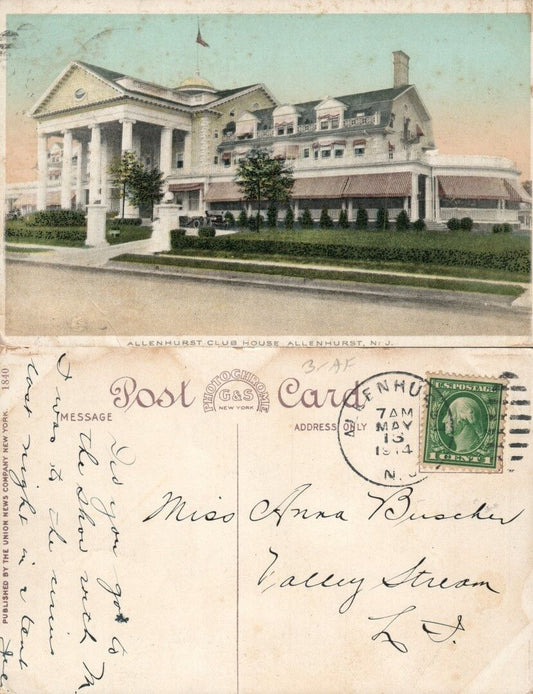 ALLENHURST CLUB HOUSE ALLENHURST, N. J.
1840
PUBLISHED BY THE UNION NEWS COMPANY NEW YORK.
Post Card
PHOTOCHROME
G&S
NEW YORK
MESSAGE
ADDRESS ONLY
ALLENHU
7 AM
MAY
13
1914
N.J.
U.S. POSTAGE
1 CENT 1
Did you go to
the show with M.
I was to the circus
last night in a tent
Miss Anna Buscher
Valley Stream
L. I.